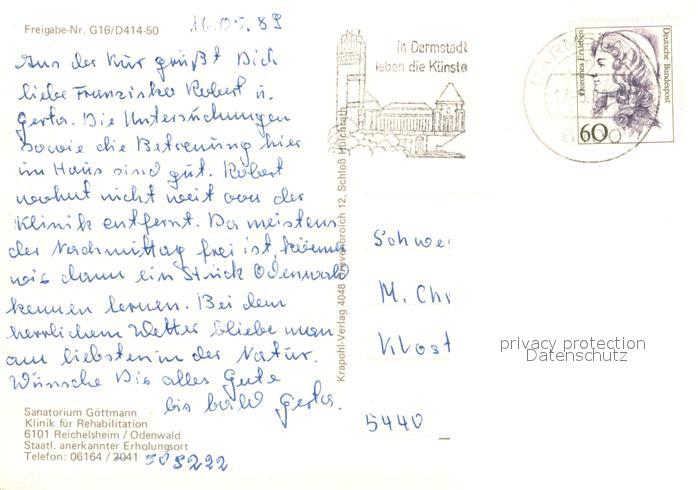 Freigabe-Nr. G16/D414-50
16.05.89
Aus der Kur grüßt Dich
liebe Franziska Robert u.
Gerta. Die Untersuchungen
sowie die Betreuung hier
im Haus sind gut. Robert
wohnt nicht weit von der
Klinik entfernt. Da meistens
der Nachmittag frei ist, können
wir dann ein Stück Odenwald
kennen lernen. Bei dem
herrlichem Wetter bliebe man
am liebsten in der Natur.
Wünsche Dir alles Gute
bis bald Gerta.
Sanatorium Göttmann
Klinik für Rehabilitation
6101 Reichelsheim / Odenwald
Staatl. anerkannter Erholungsort
Telefon: 06164 / 2041 508222
Krapohl-Verlag 4048 Grevenbroich 12, Schloß Hülchrath
in Darmstadt
leben die Künste
Deutsche Bundespost
60
Schwe
M. Chr
Klost
5440
privacy protection
Datenschutz